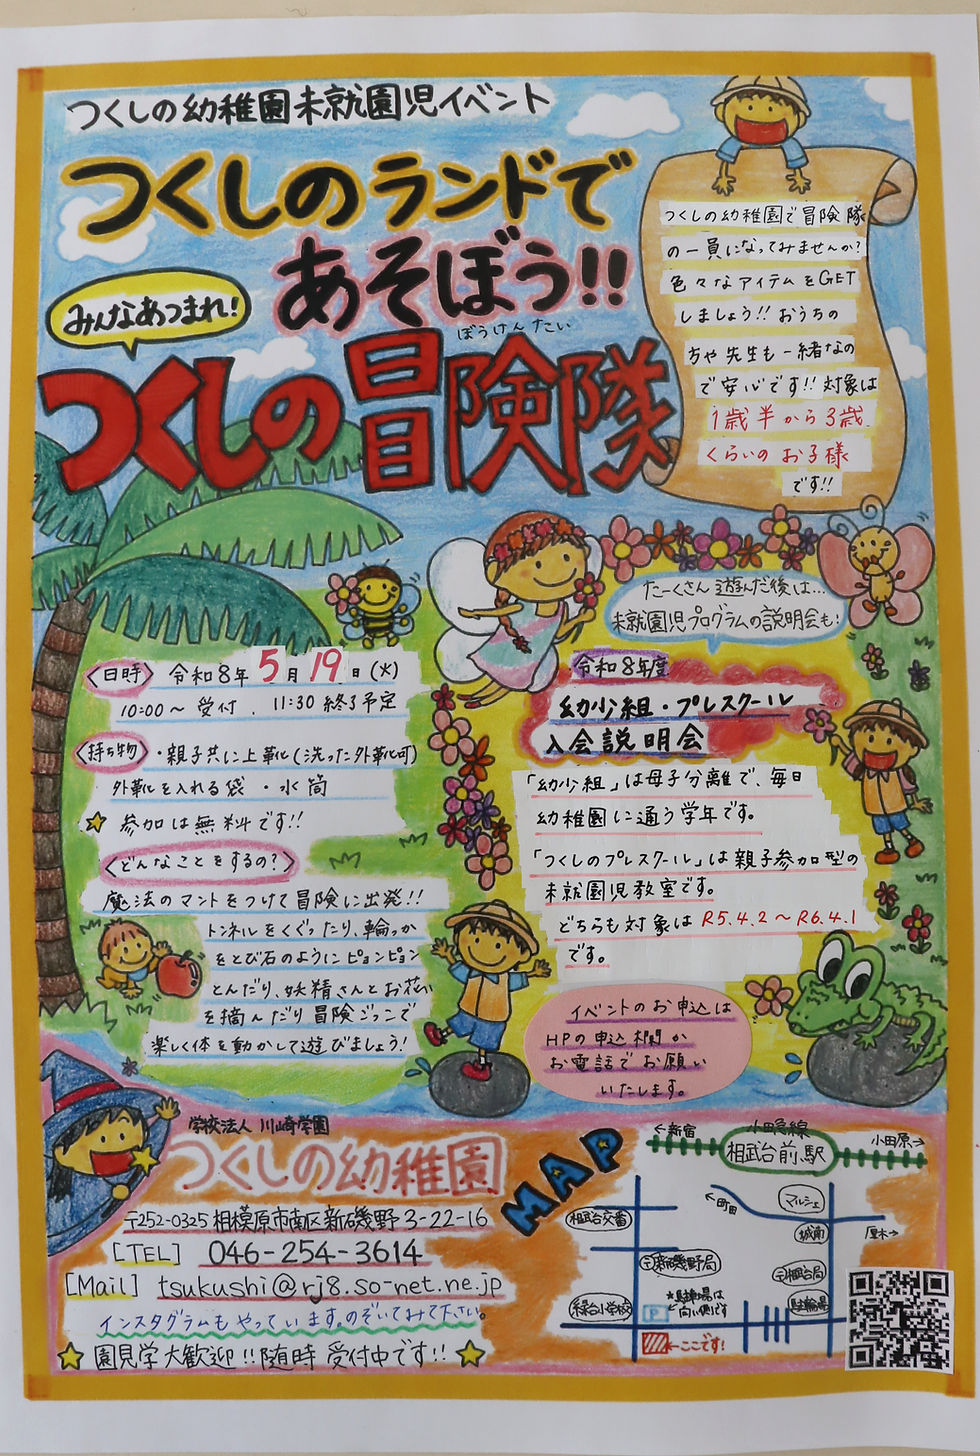 つくしの幼稚園未就園児イベント
つくしのランドで
あそぼう!!
みんなあつまれ!
ぼうけんたい
つくしの冒険隊
つくしの幼稚園で冒険隊
の一員になってみませんか?
色々なアイテムをGET
しましょう!! おうちの
方や先生も一緒なの
で安心です!! 対象は
1歳半から3歳
くらいのお子様
です!!
たーくさん遊んだ後は…
未就園児プログラムの説明会も!
〈日時〉 令和8年5月19日(火)
10:00〜受付、11:30終了予定
〈持ち物〉・親子共に上靴(洗った外靴可)
外靴を入れる袋 ・水筒
☆ 参加は無料です!!
〈どんなことをするの?〉
魔法のマントをつけて冒険に出発!!
トンネルをくぐったり、輪っか
をとび石のようにピョンピョン
とんだり、妖精さんとお花
を摘んだり冒険ごっこで
楽しく体を動かして遊びましょう!
令和8年度
幼少組・プレスクール
入会説明会
「幼少組」は母子分離で、毎日
幼稚園に通う学年です。
「つくしのプレスクール」は親子参加型の
未就園児教室です。
どちらも対象はR5.4.2〜R6.4.1
です。
イベントのお申込は
HPの申込欄か
お電話でお願い
いたします。
学校法人 川崎学園
つくしの幼稚園
〒252-0325 相模原市南区新磯野3-22-16
[TEL] 046-254-3614
[Mail] tsukushi@rj8.so-net.ne.jp
インスタグラムもやっています。のぞいてみて下さい。
☆ 園見学大歓迎!! 随時受付中です!! ☆
MAP
小田急線
←新宿
相武台前駅
小田原→
←町田
マルシェ
相武台交番
城南
厚木→
〒新磯野局
〒相台局
緑台小学校
P
*駐車場は
向い側です
駐輪場
←ここです!